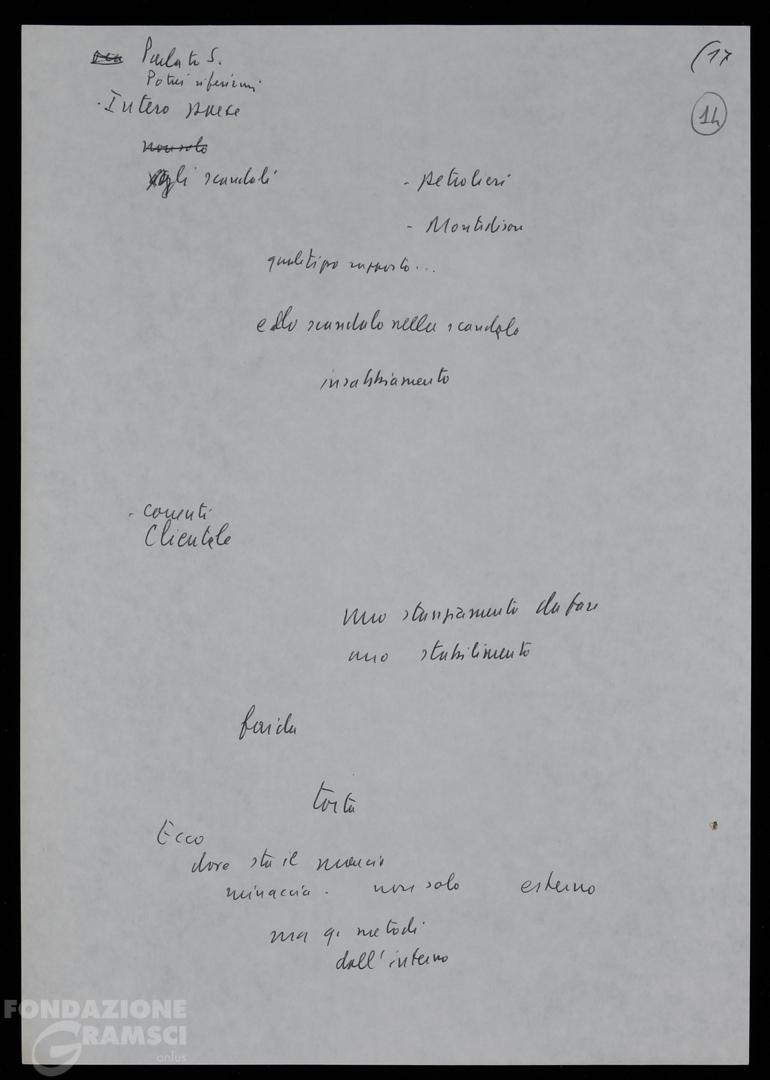 Parlato S. (17
Potrei riferirmi
- Intero paese 14
non solo
gli scandali - petrolieri
- Montedison
quale tipo rapporto...
e dello scandalo nello scandalo
insabbiamento
- correnti
Clientele
uno stanziamento da fare
uno stabilimento
faida
torta
Ecco
dove sta il marcio
minaccia - non solo esterno
ma q. metodi
dall'interno
FONDAZIONE
GRAMSCI
onlus